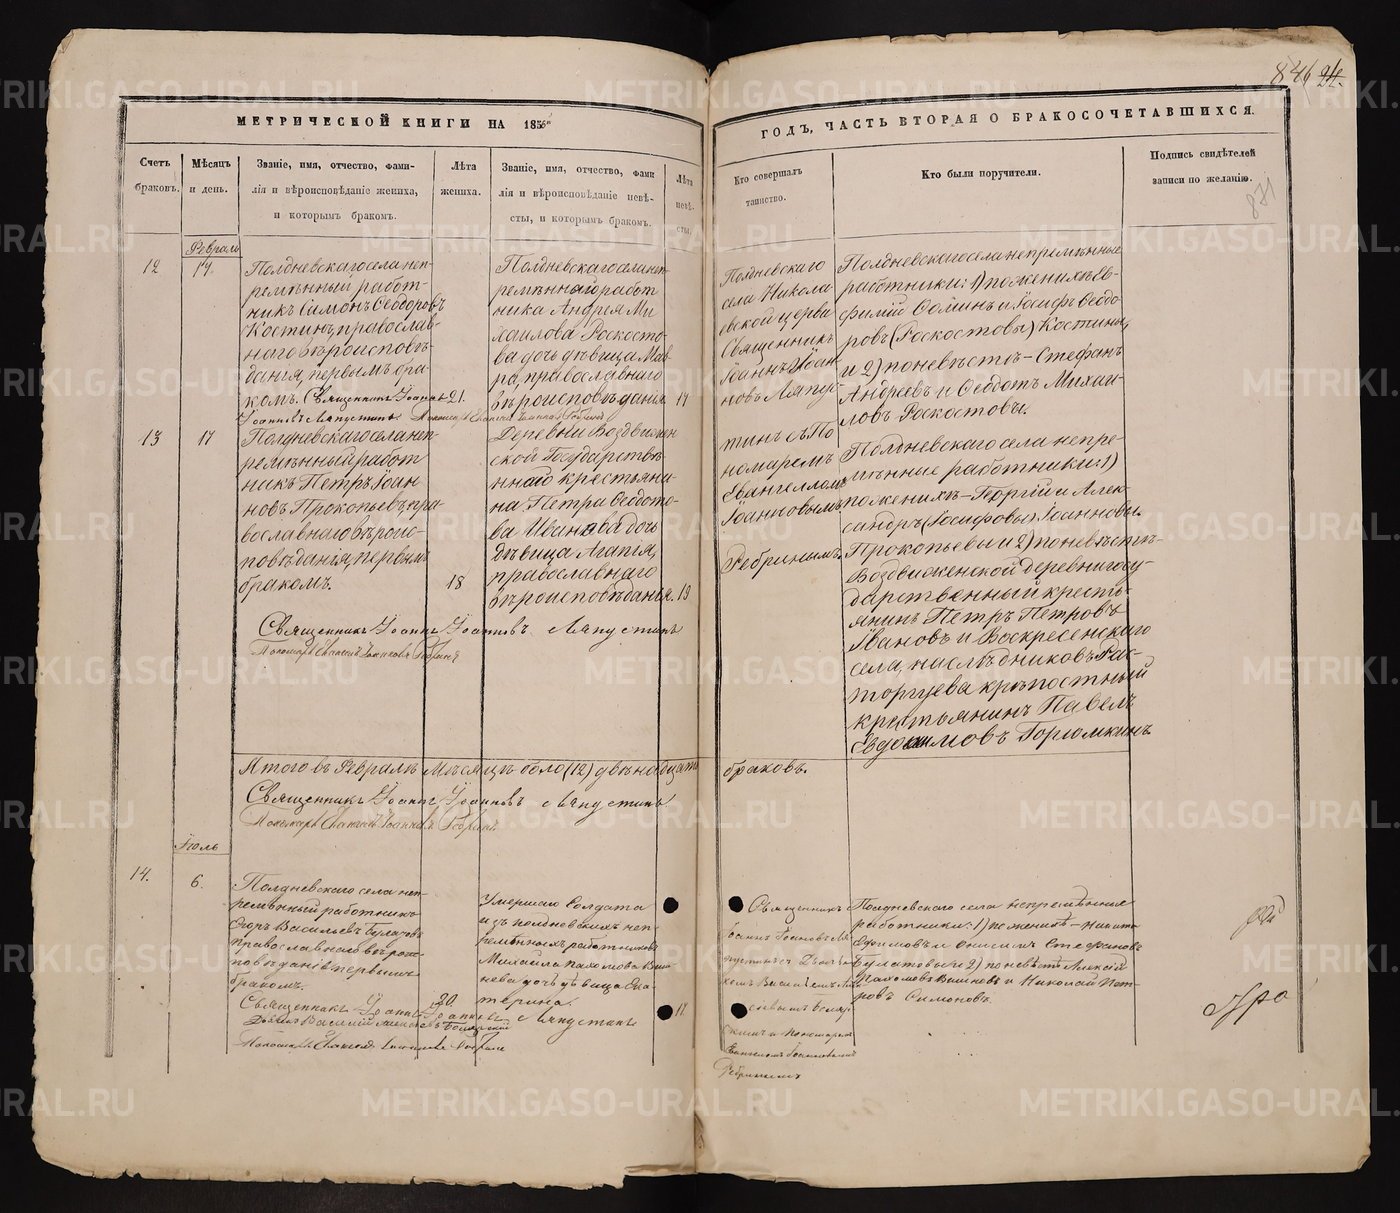 846 24.
МЕТРИЧЕСКОЙ КНИГИ НА 1856й
ГОДЪ, ЧАСТЬ ВТОРАЯ О БРАКОСОЧЕТАВШИХСЯ.
Счетъ браковъ.
Мѣсяцъ и день.
Званіе, имя, отчество, фами-
лія и вѣроисповѣданіе жениха,
и которымъ бракомъ.
Лѣта
жениха.
Званіе, имя, отчество, фами
лія и вѣроисповѣданіе невѣ-
сты, и которымъ бракомъ.
Лѣта
невѣ-
сты.
Кто совершалъ
таинство.
Кто были поручители.
Подпись свидѣтелей
записи по желанію.
871
Февраль
12
17.
Полдневскаго села неп-
ремѣнный работ-
никъ Симонъ Ѳеодоровъ
Костинъ, православ-
наго вѣроисповѣ-
данія, первымъ бра-
комъ. Священникъ Іоаннъ
Іоанновъ Ляпустинъ
21.
Полдневскаго села неп-
ремѣннаго работ
ника Андрея Ми
хаилова Роскосто-
ва дочь дѣвица Мав-
ра, православнаго
вѣроисповѣданія
19
Полдневскаго
села Никола-
евской церкви
Священникъ
Іоаннъ Іоан-
новъ Ляпус-
тинъ съ По
номаремъ
Евангеломъ
Іоанновымъ
Ребринымъ.
Полдневскаго села непремѣнные
работники: 1) по женихѣ Ев-
фимій Ѳоминъ и Іосифъ Ѳеодо
ровъ (Роскостовы) Костины,
и 2) по невѣстѣ - Стефанъ
Андреевъ и Ѳедотъ Михаи-
ловъ Роскостовы.
13
17
Полдневскаго села неп-
ремѣнный работ
никъ Петръ Іоан
новъ Прокопьевъ, пра-
вославнаго вѣроис-
повѣданія, первымъ
бракомъ.
18
Деревни Воздвижен
ской Государстве
ннаго крестьяни-
на Петра Ѳедото-
ва Иванова дочь
дѣвица Агапія,
православнаго
вѣроисповѣданія.
19
Священникъ Іоаннъ Іоанновъ Ляпустинъ
Полдневскаго села непре-
мѣнные работники: 1)
по женихѣ - Георгій и Алек-
сандръ (Іосифовы) Іоанновы
Прокопьевы и 2) по невѣстѣ-
Воздвиженской деревни госу-
дарственный кресть-
янинъ Петръ Петровъ
Ивановъ и Воскресенскаго
села, наслѣдниковъ Рас-
торгуева крѣпостный
крестьянинъ Павелъ
Евдокимовъ Горюмкинъ.
Итого въ Февралѣ Мѣсяцѣ было (12) двѣнадцать
браковъ.
Священникъ Іоаннъ Іоанновъ Ляпустинъ
Іюль
14.
6.
Полдневскаго села неп-
ремѣнный работникъ
Егоръ Васильевъ Булатовъ
православнаго вѣроис-
повѣданія первымъ
бракомъ.
20.
Умершаго Солдата
изъ полдневскихъ неп-
ремѣнныхъ работниковъ
Михаила Пахомова
дочь дѣвица Ека-
терина.
Священникъ Іоаннъ Іоанновъ Ляпустинъ
Священникъ
Іоаннъ Іоанновъ Ля-
пустинъ съ Дьячь
комъ Василіемъ
и пономаремъ
Евангеломъ Іоанновымъ
Ребринымъ
Полдневскаго села непремѣнные
работники: 1) по женихѣ - Никита
Ефимовъ и Онисимъ Стефановъ
Булатовы и 2) по невѣстѣ Алексѣй
Пахомовъ и Николай Пет-
ровъ Симоновъ.
METRIKI.GASO-URAL.RU